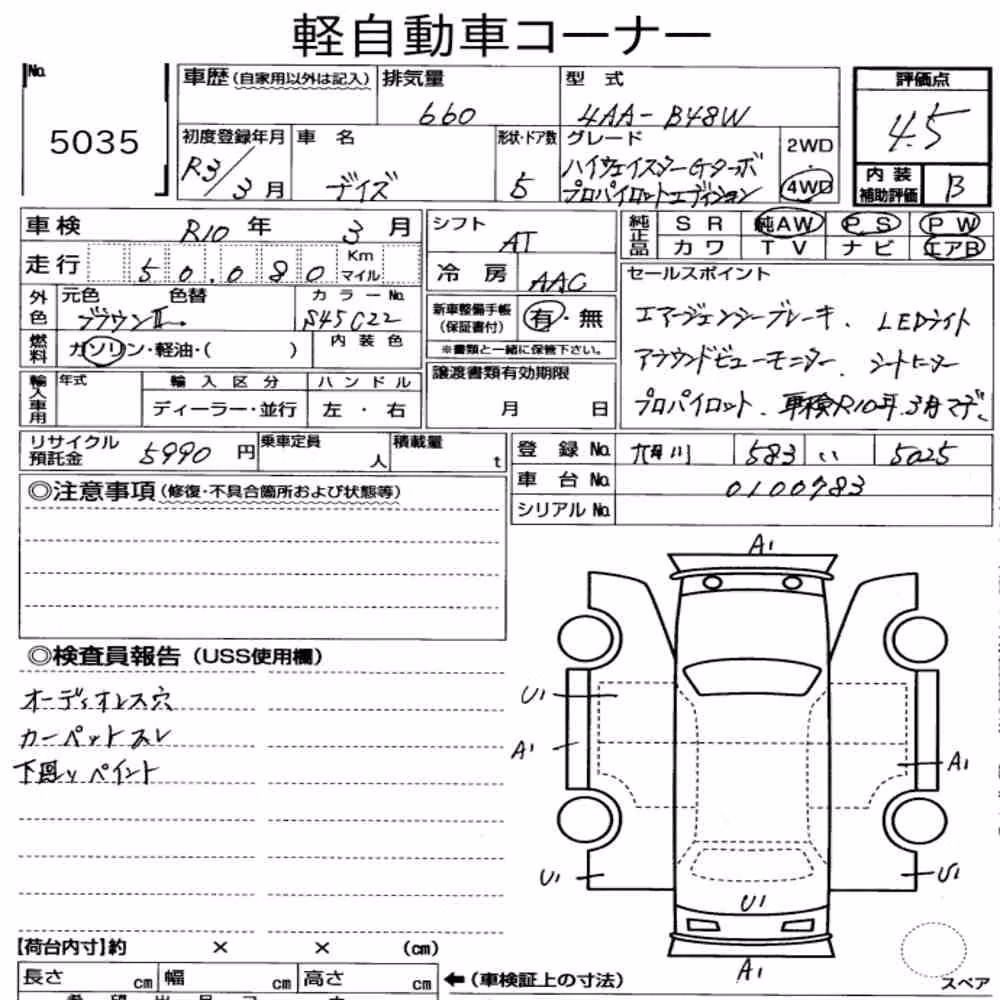 軽自動車コーナー
No.
5035
車歴(自家用以外は記入)
排気量
660
型式
4AA-B48W
評価点
4.5
初度登録年月
R3/3月
車名
デイズ
形状・ドア数
5
グレード
ハイウェイスターGターボ
プロパイロットエディション
2WD
4WD
内装
補助評価
B
車検 R10年 3月
シフト
AT
純正品
SR 純AW PS PW
カワ TV ナビ エアB
走行 50,080 Km
マイル
冷房
AAC
セールスポイント
エマージェンシーブレーキ、LEDライト
アラウンドビューモニター、シートヒーター
プロパイロット、車検R10年3月マデ
外色
元色 色替
ブラウンⅡ
カラーNo.
S45C22
新車整備手帳
(保証書付)
有・無
※書類と一緒に保管下さい。
燃料
ガソリン・軽油・( )
内装色
譲渡書類有効期限
月 日
輸入車用
年式
輸入区分
ハンドル
ディーラー・並行
左・右
リサイクル
預託金
5990円
乗車定員
人
積載量
t
登録No. 旭川 583 い 5025
車台No. 0100783
シリアルNo.
◎注意事項(修復・不具合箇所および状態等)
◎検査員報告(USS使用欄)
オーディオレス穴
カーペットスレ
下廻りペイント
A1
U1
A1
A1
U1
U1
U1
A1
スペア
【荷台内寸】約 × × (cm)
長さ cm 幅 cm 高さ cm
←(車検証上の寸法)